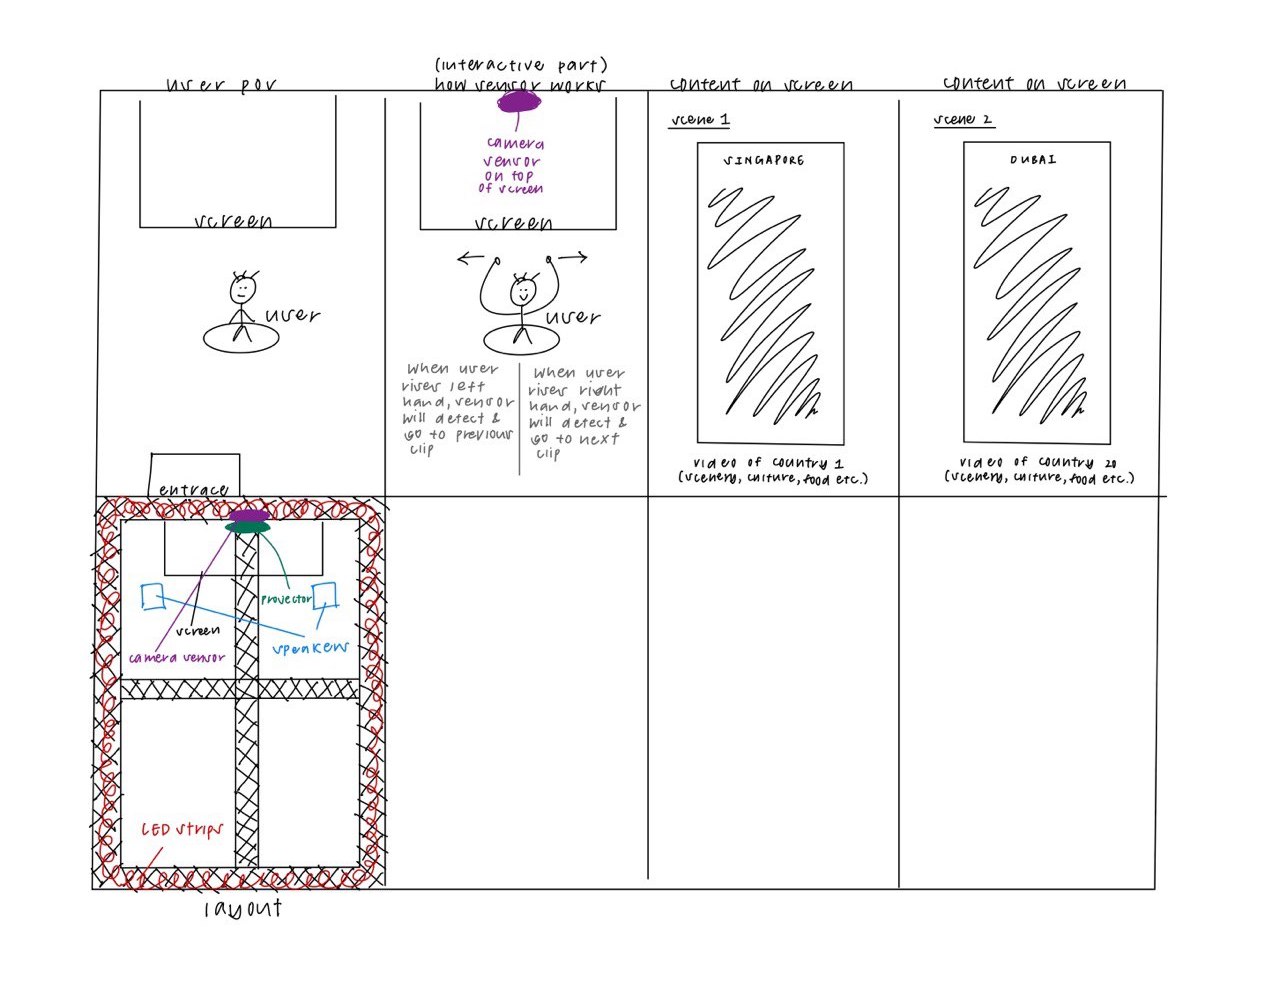 user pov
screen
user
(interactive part)
how sensor works
camera
sensor
on top
of screen
screen
user
When user
rises left
hand, sensor
will detect &
go to previous
clip
When user
rises right
hand, sensor
will detect &
go to next
clip
content on screen
scene 1
SINGAPORE
video of country 1
(scenery, culture, food etc.)
content on screen
scene 2
DUBAI
video of country 20
(scenery, culture, food etc.)
entrace
projector
screen
camera sensor
speakers
LED strips
layout